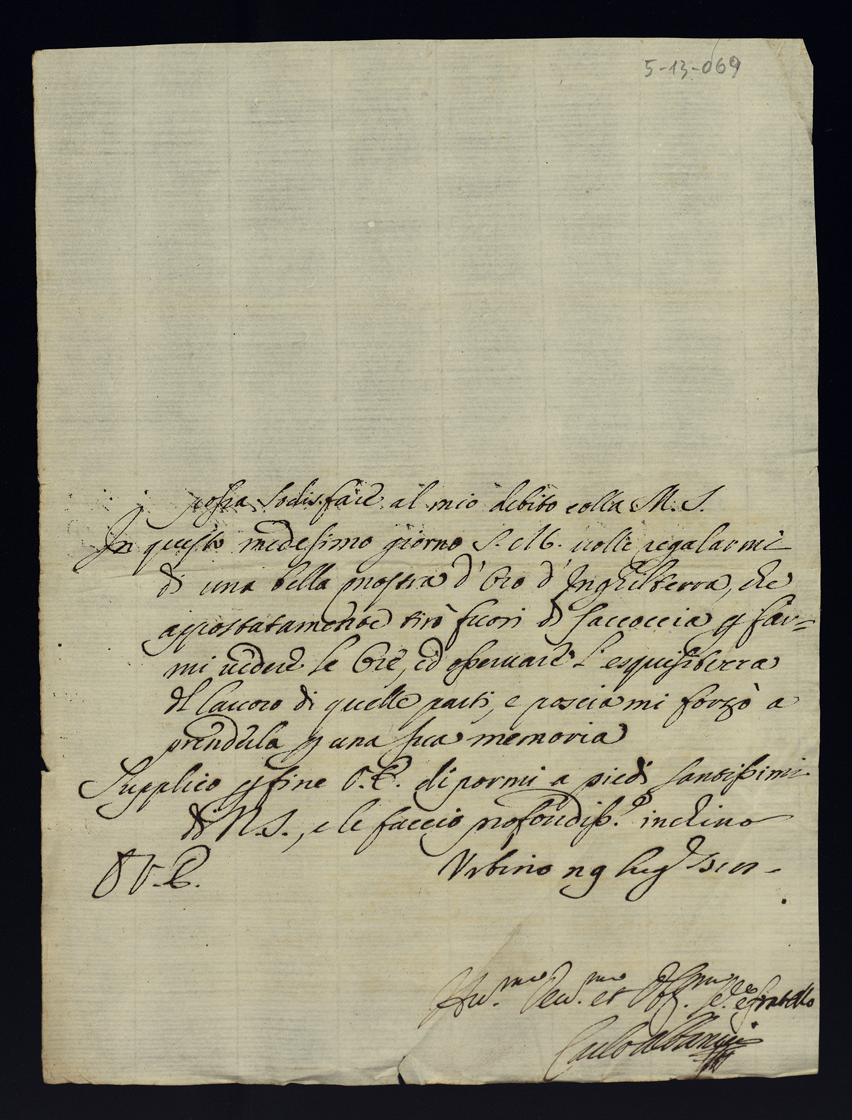 5-13-069
possa sodisfare al mio debito colla M. S.
In questo medesimo giorno S. M. volle regalarmi
di una bella mostra d'Oro d'Inghilterra, che
appostatamente tirò fuori di saccoccia p far=
mi vedere le Ore, ed osservare l'esquisitezza
del lavoro di quelle parti, e poscia mi forzò a
prenderla p una sua memoria
Supplico p fine V. E. di pormi a piedi santissimi
di N. S., e le faccio profondiss.o inchino
D V. E. Urbino 19 lug
Hu.mo Dev.mo et Obl.mo Se.re e fratello
Carlo Albani